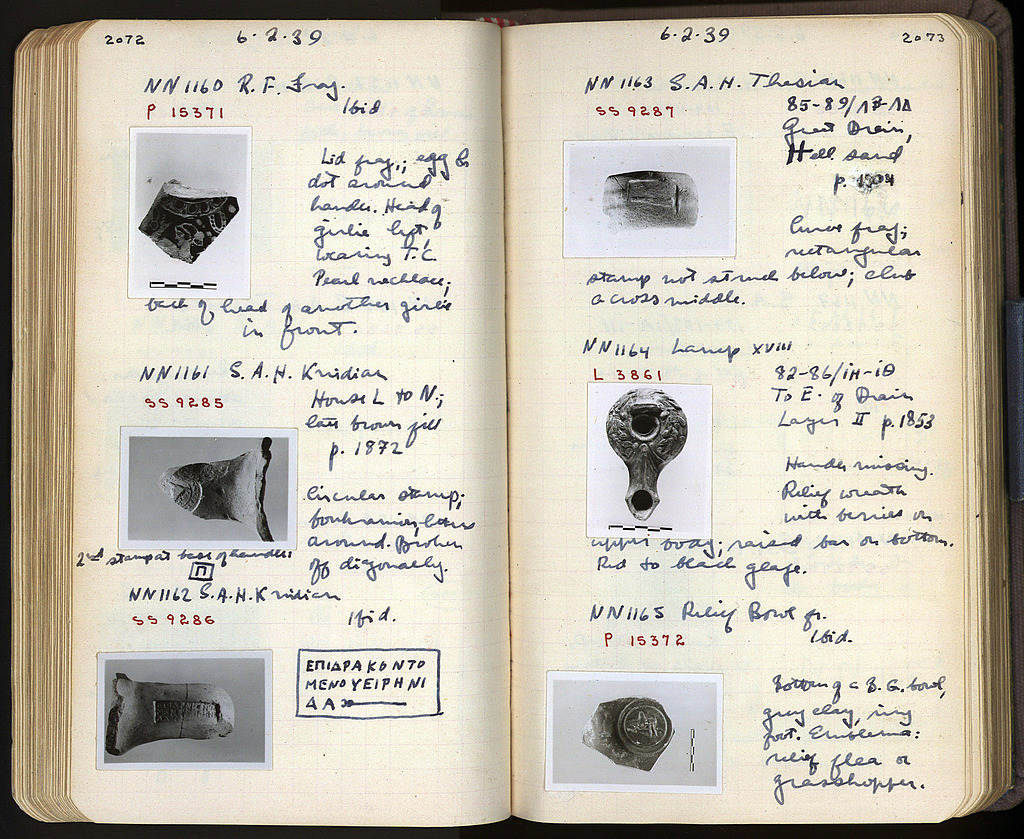 2072
6·2·39
NN1160 R.F. Frag.
P 15371
Ibid
Lid frag.; egg &
dot around
handle. Head of
girlie left,
wearing T.C.
Pearl necklace;
back of head of another girlie
in front.
NN1161 S.A.H. Knidian
SS 9285
House L to N.;
late brown fill
p. 1872
Circular stamp;
boukranion, letters
around. Broken
off diagonally.
2nd stamp at base of handle:
Π
NN1162 S.A.H. Knidian
SS 9286
Ibid.
ΕΠΙΔΡΑΚΟΝΤΟ
ΜΕΝΟΥΕΙΡΗΝΙ
ΔΑ
6·2·39
2073
NN1163 S.A.H. Thasian
SS 9287
85-89/ΙΒ-ΙΔ
Great Drain,
Hell. sand
p.
Curve frag;
rectangular
stamp not struck below; club
across middle.
NN1164 Lamp XVIII
L 3861
82-86/ΙΗ-ΙΘ
To E. of Drain
Layer II p. 1853
Handle missing.
Relief wreath
with berries on
upper body; raised bar on bottom.
Red to black glaze.
NN1165 Relief Bowl fr.
P 15372
Ibid.
Bottom of a B.G. bowl,
gray clay, ring
foot. Emblema:
relief flea or
grasshopper.